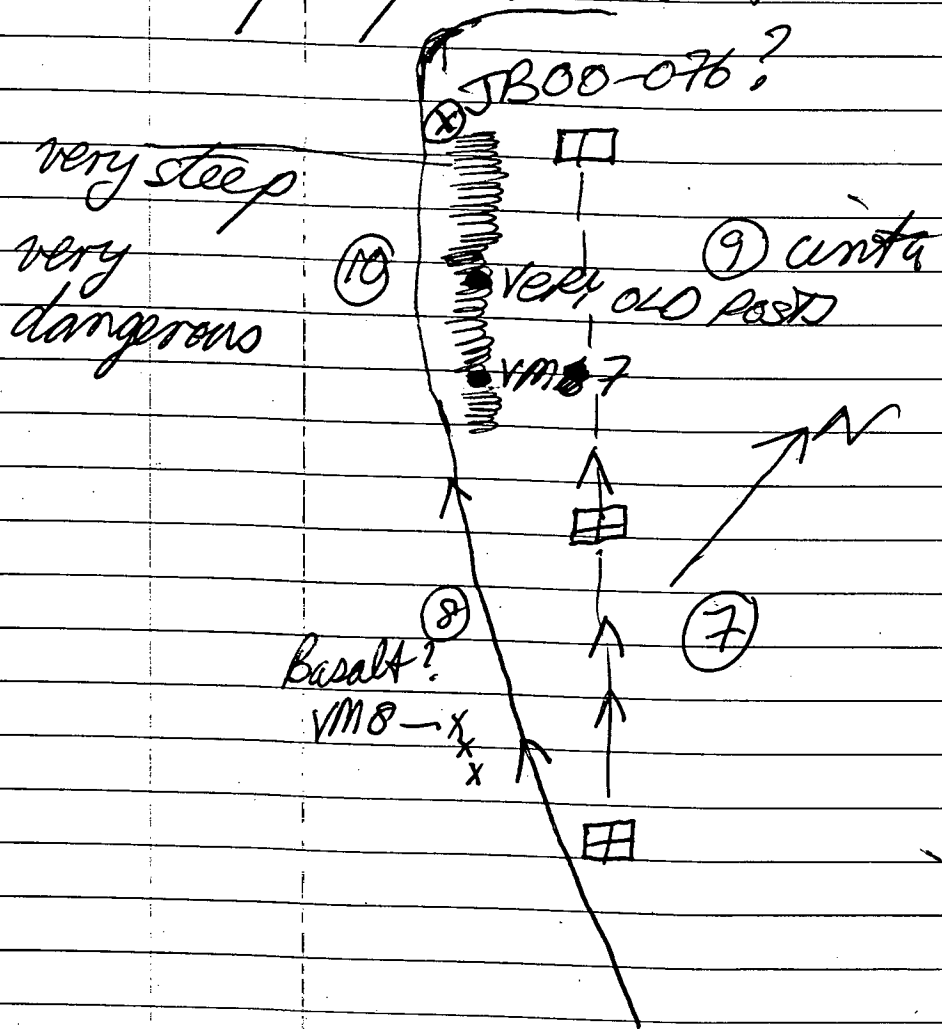 JB00-076?
very steep
very
dangerous
10
9
VERY OLD POSTS
VM 7
N
8
7
Basalt?
VM8 – x
x
x